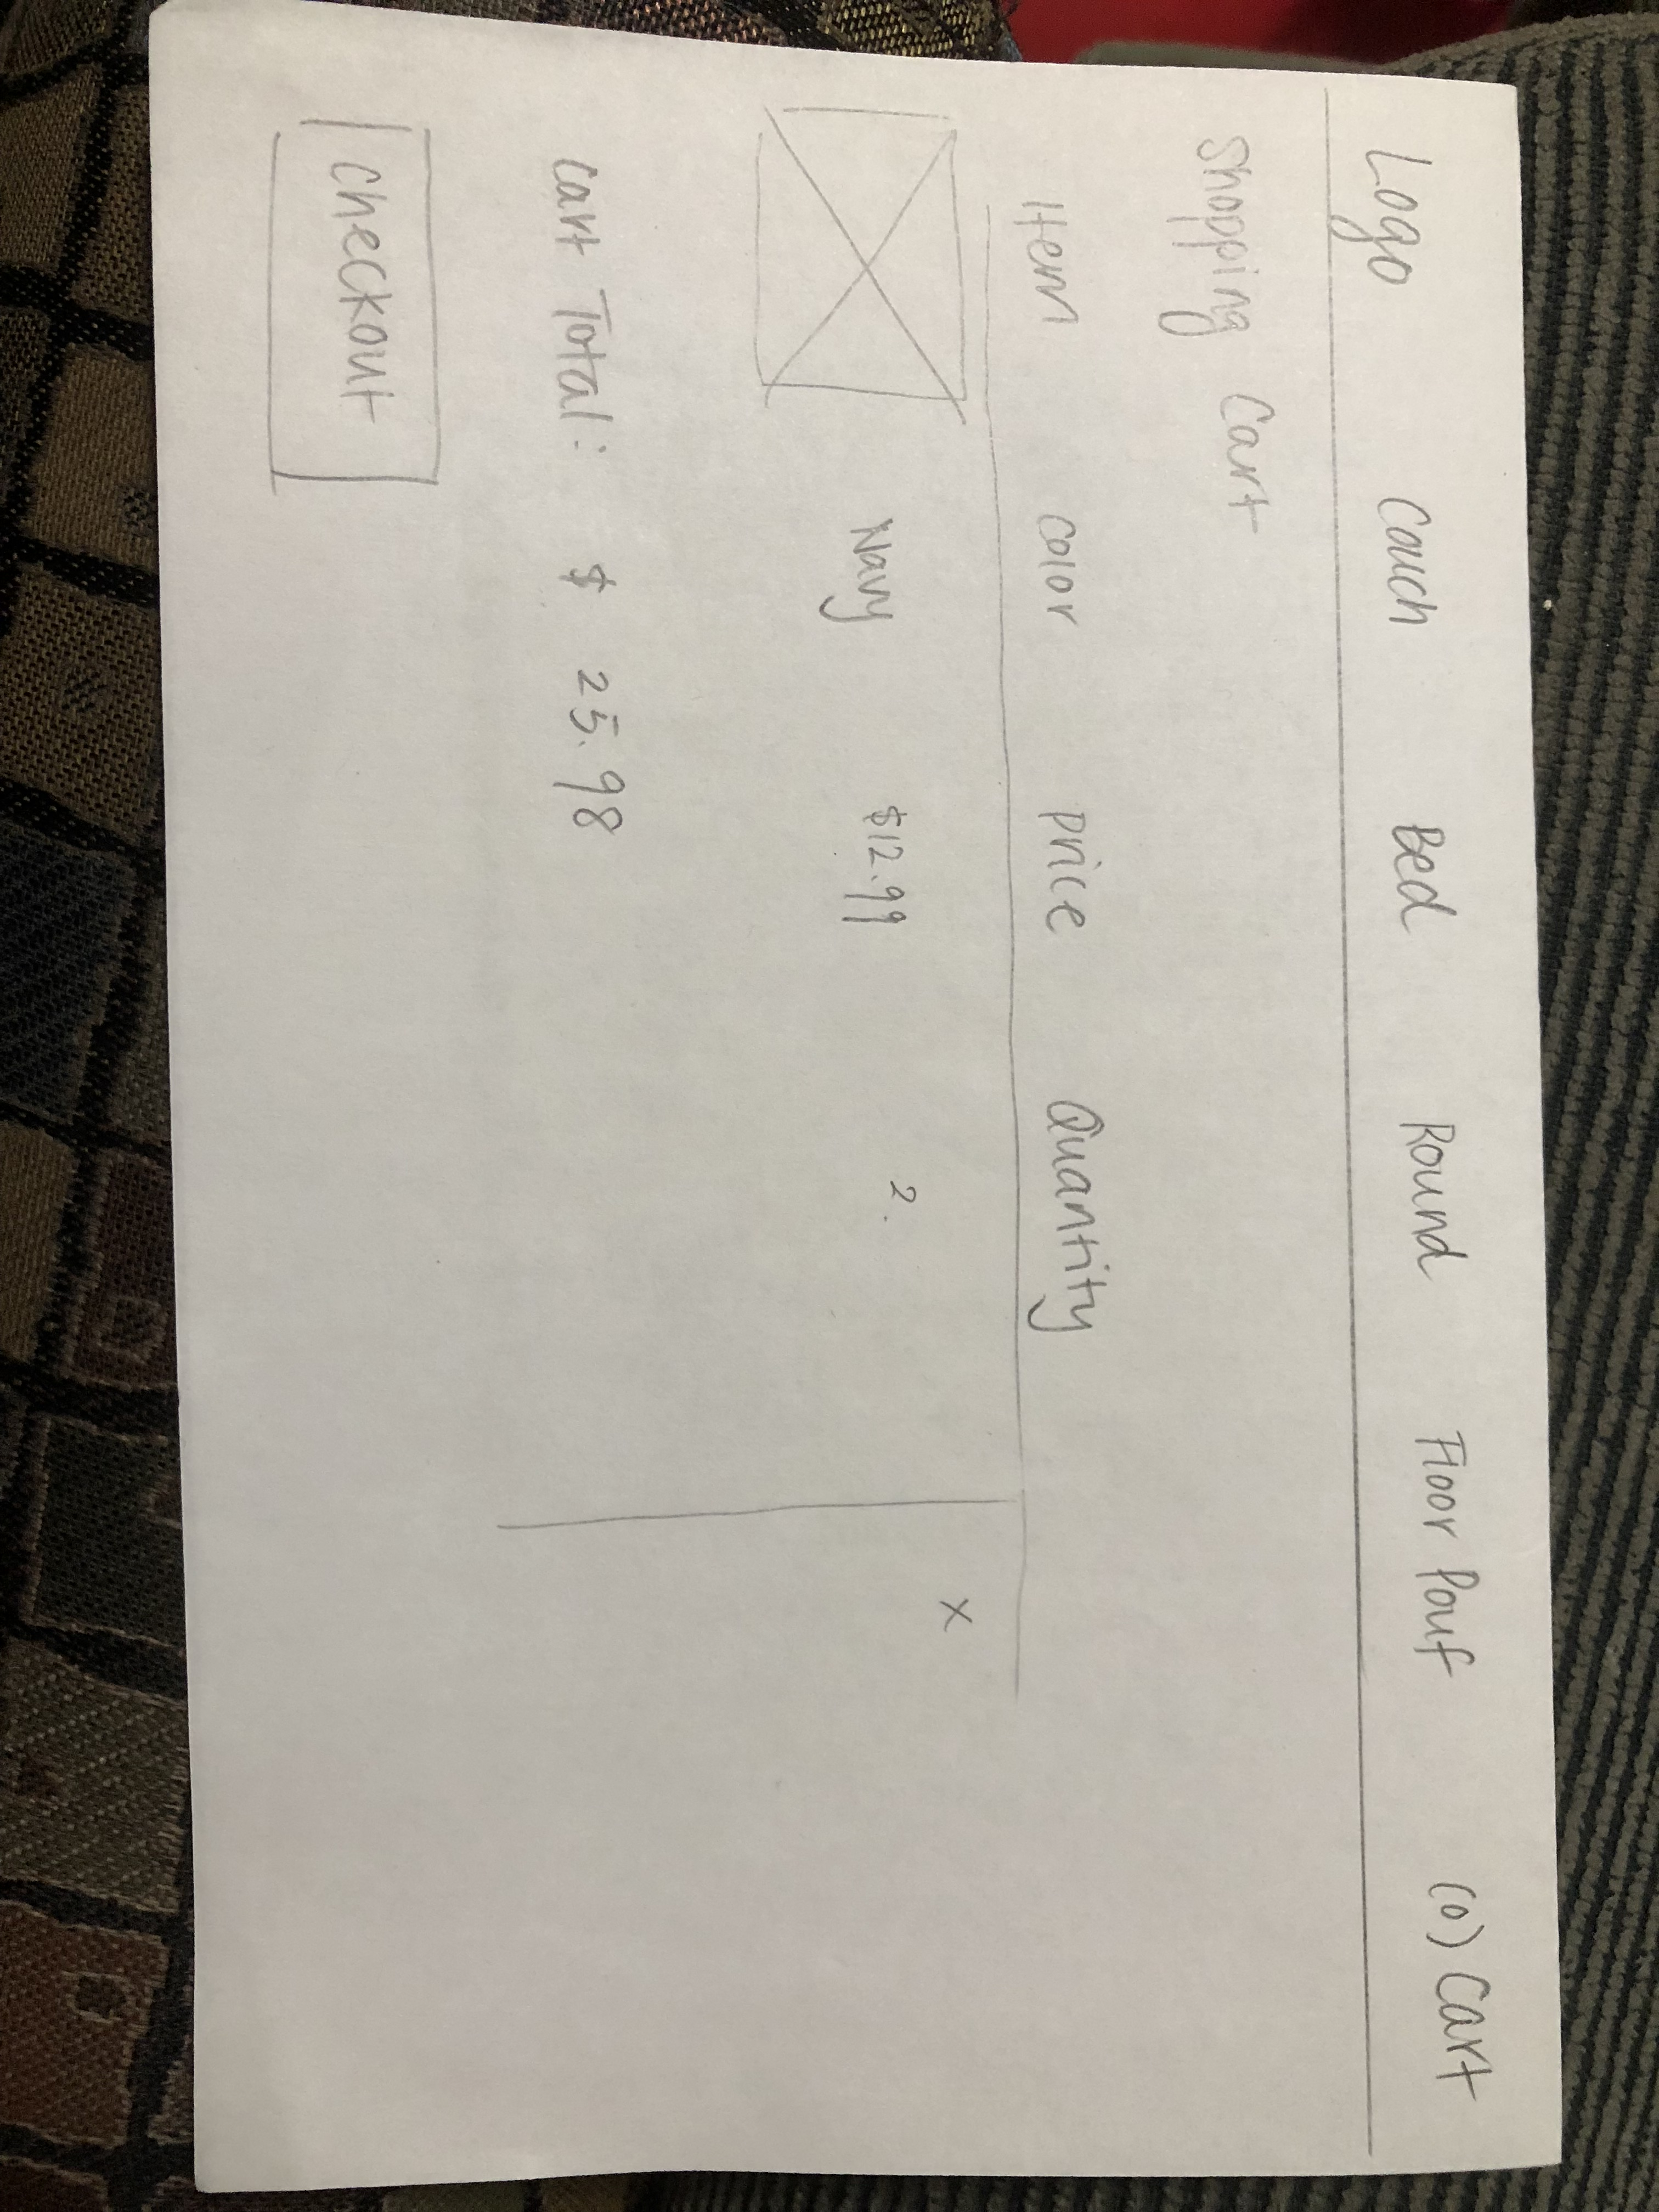 Logo Couch Bed Round Floor Pouf (0) Cart
Shopping Cart
Item Color Price Quantity
Navy $12.99 2. x
Cart Total: $ 25.98
Checkout